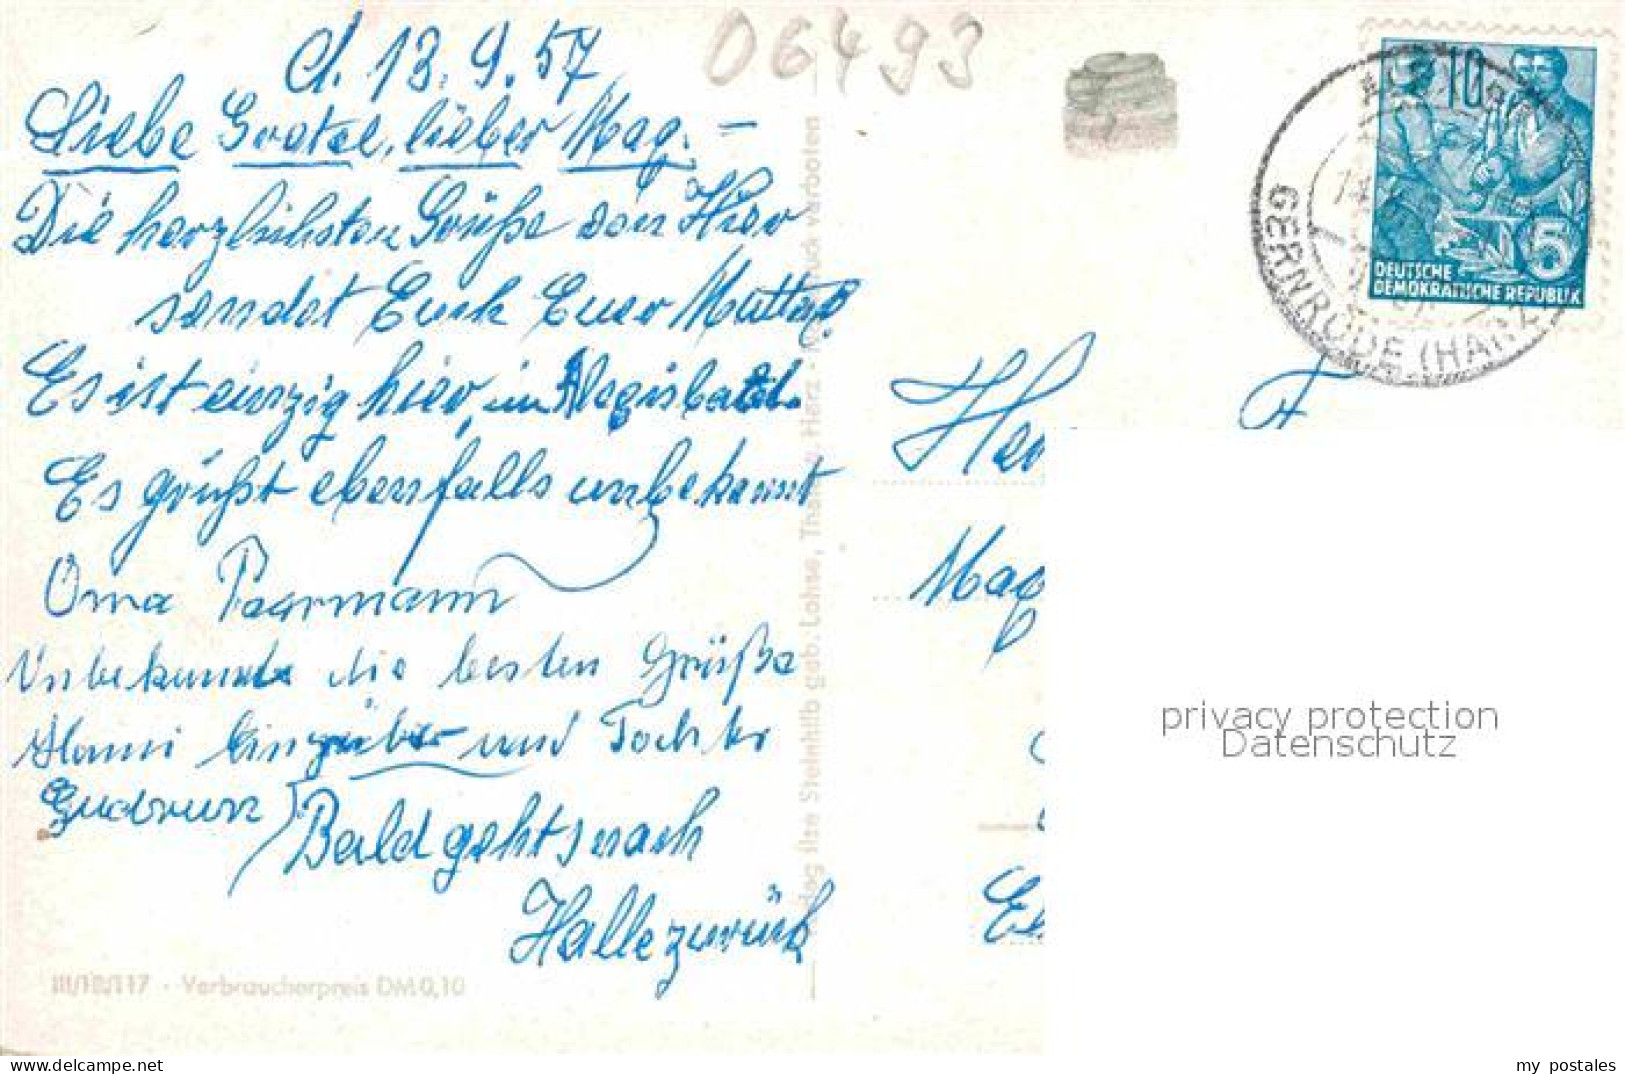 d. 13.9.57
06493
Liebe Gretel, lieber Mag. –
Die herzlichsten Grüße von Hier
sendet Euch Euer Mutter
Es ist einzig hier, im
Es grüßt ebenfalls unbekannt
Oma Paarmann
Unbekannt die besten Grüße
und Tochter
Gudrun
Bald gehts nach
Halle zurück
III/18/117 · Verbraucherpreis DM 0,10
Ilse Steinhilb geb. Lohse, Thale Harz · Nachdruck verboten
10
5
DEUTSCHE
DEMOKRATISCHE REPUBLIK
GERNRODE (HARZ)
privacy protection
Datenschutz
my_postales
delcampe.net